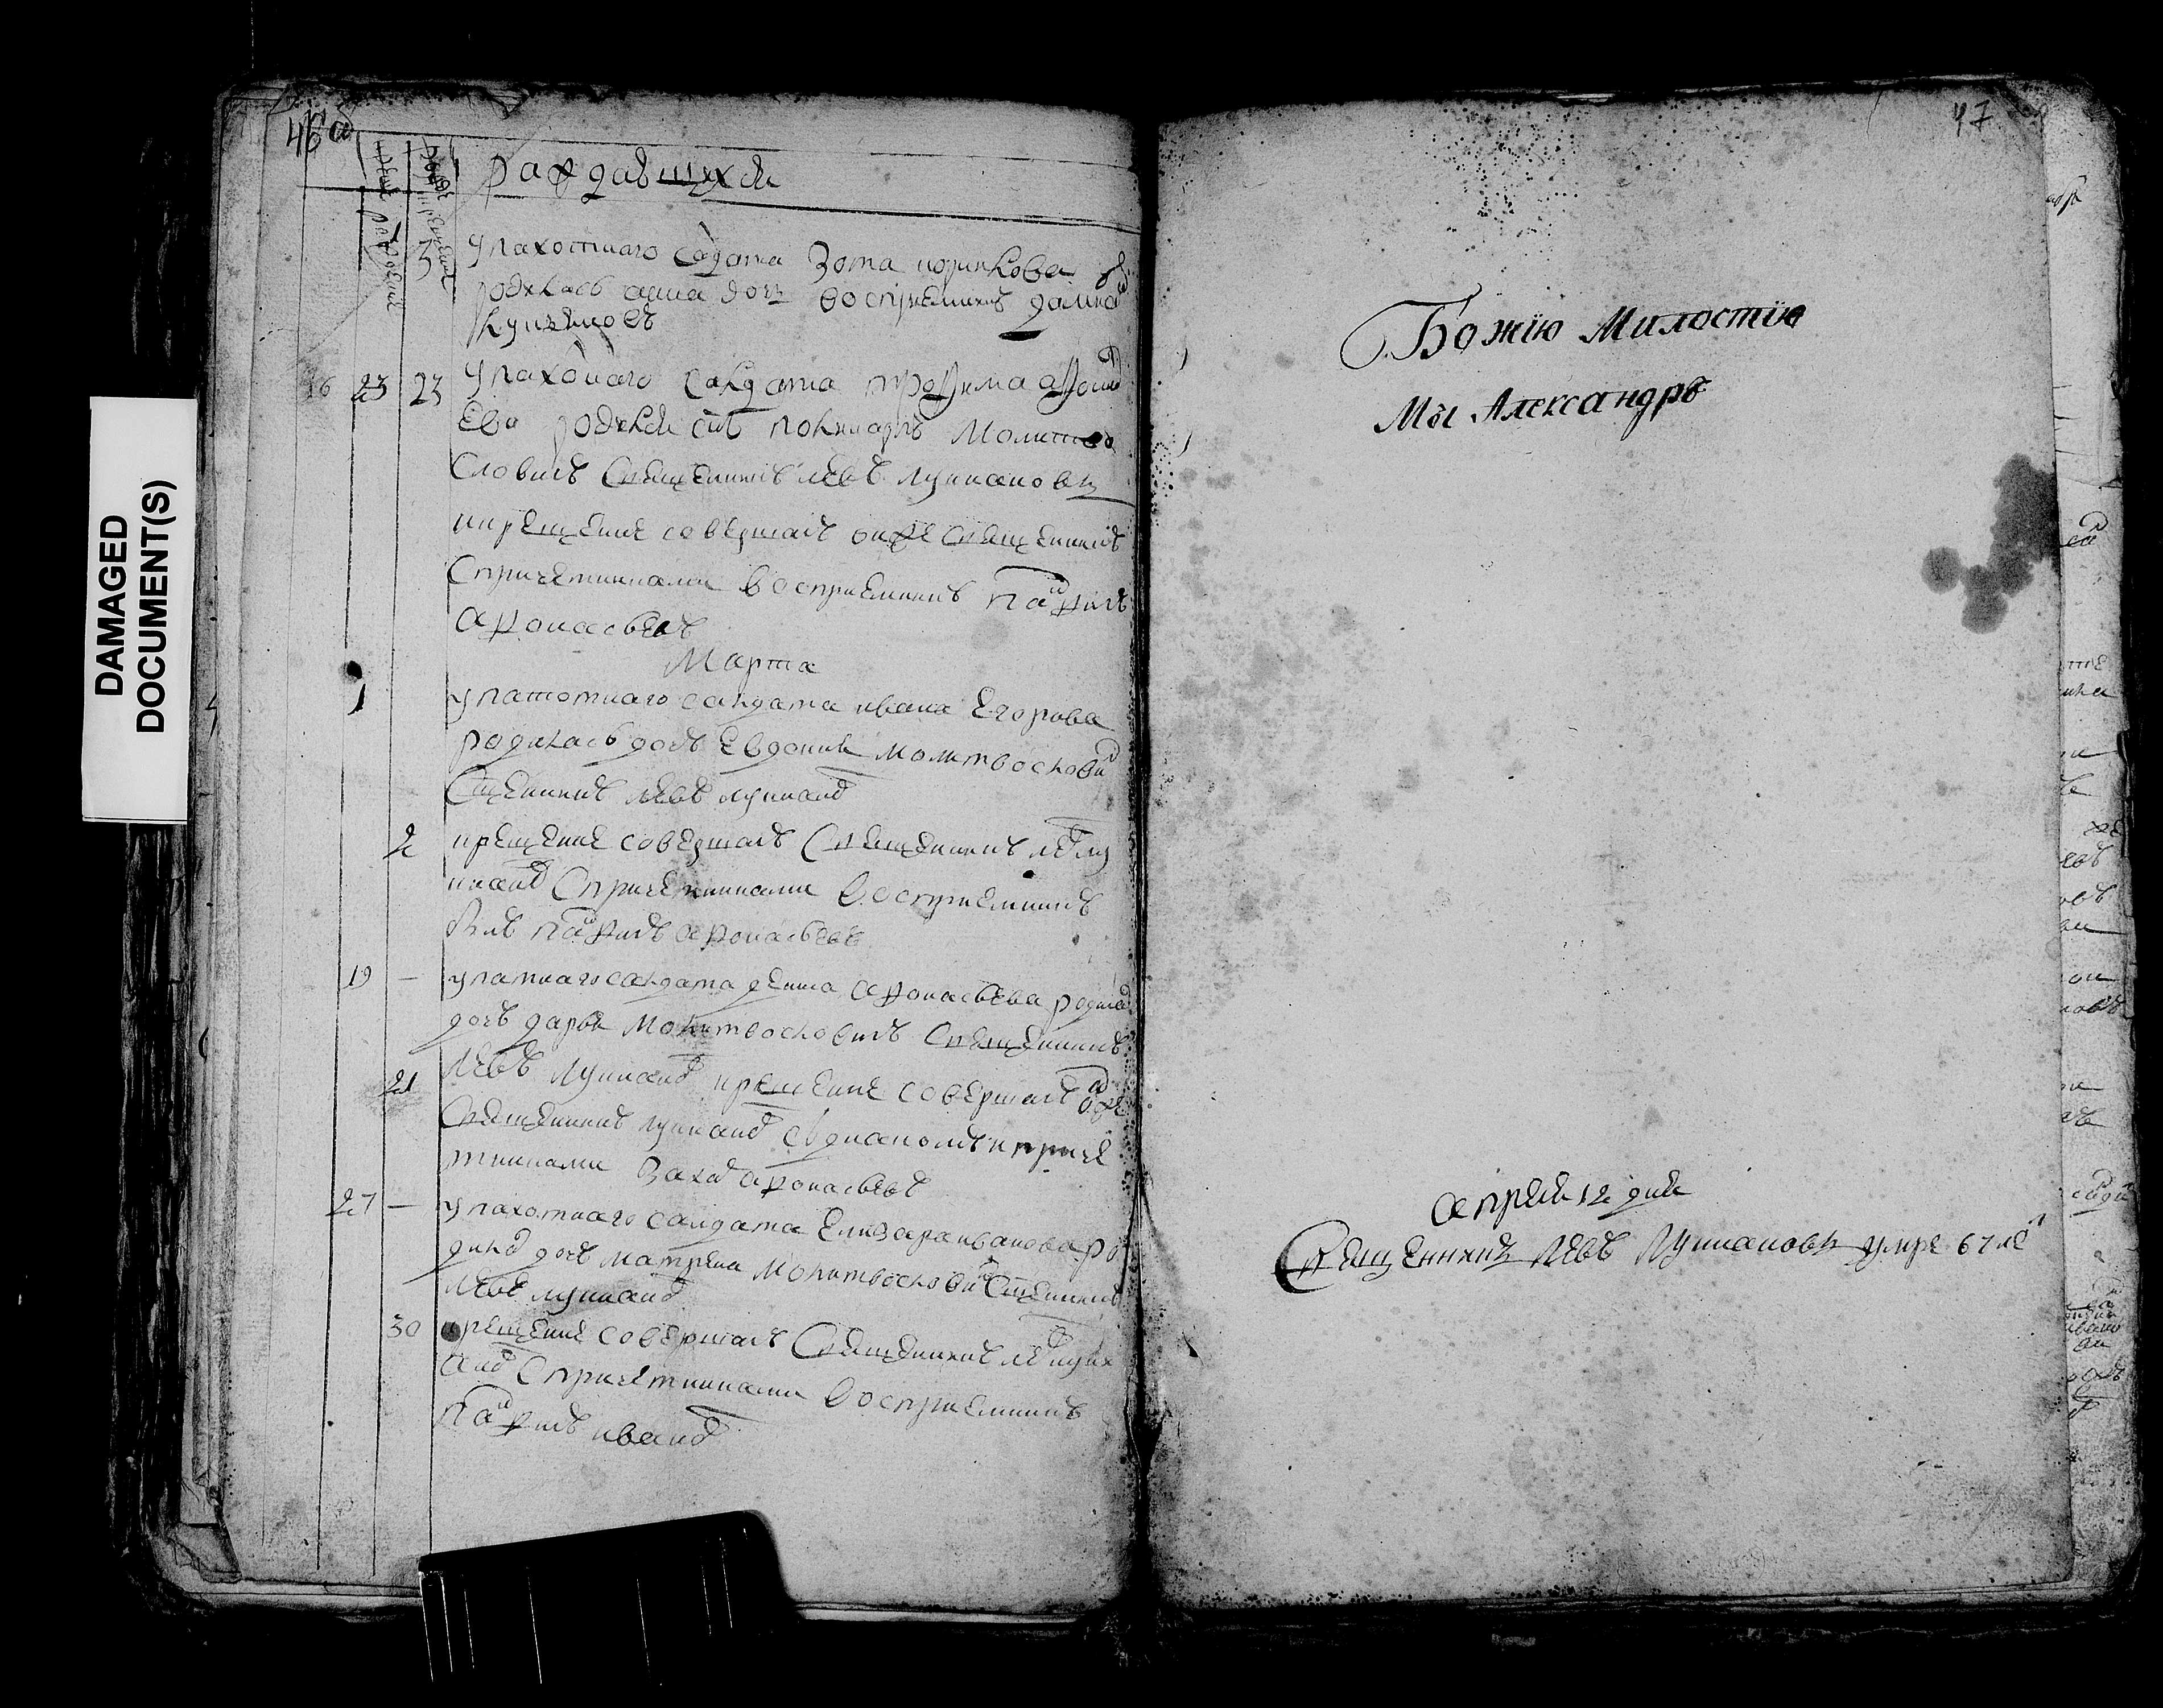 DAMAGED
DOCUMENT(S)
46
раждавшихся
3
у пахотнаго салдата Зота
родилась анна дочь восприемникъ
16 23 23 у пахотнаго салдата трофима
ева родился сынъ молитво
словилъ Священникъ левъ лукиановъ
и крещение совершалъ онже Священникъ
Спричетниками восприемникъ
афонасьевъ
Марта
1 у пахотнаго салдата ивана Егорова
родилась дочь Евдокия молитвословил
Сщенникъ левъ лукиано
2 крещение совершалъ Священникъ ле лу
киано Спричетниками Восприемникъ
афонасьевъ
19 — у пахотнаго салдата дениса афонасьева родила
дочь дарья молитвословилъ Священникъ
левъ лукиано
21 крещение совершалъ онже
Священникъ лукиано Сдиакономъ и приче
тниками Заха афонасьевъ
27 — у пахотнаго салдата Елизара иванова ро
дила дочь матрена молитвослови Сщенникъ
левъ лукиано
30 крещение совершалъ Священникъ ле луки
ано Спричетниками Восприемникъ
ивано
47
Божïю Милостïю
Мы Александръ
апреля 12 дня
Священникъ левъ Лукиановъ умре 67 ле